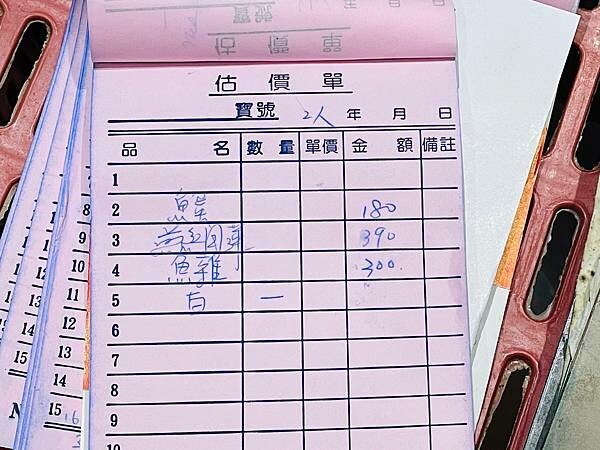 估價單
估價單
寶號 2人 年 月 日
品名 數量 單價 金額 備註
1
2 180
3 390
4 魚雜 300
5 白 一
6
7
8
9
10
8
9
10
11
12
13
14
15
15
15